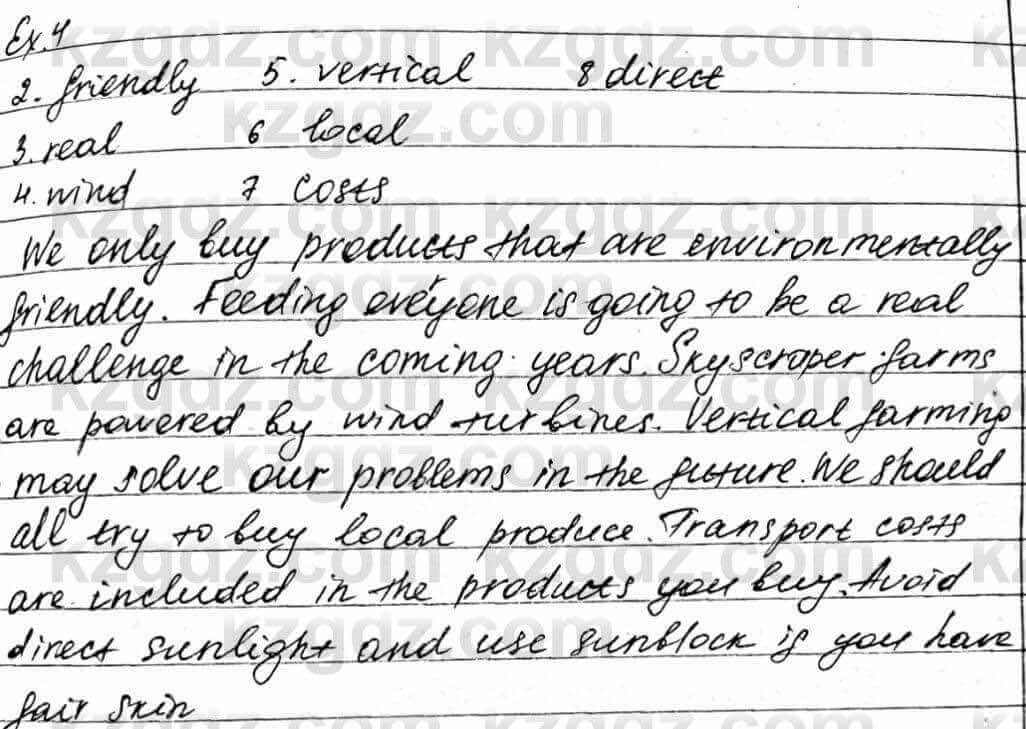 Ex.4
2. friendly 5. vertical 8 direct
3. real 6 local
4. wind 7 costs
We only buy products that are environmentally
friendly. Feeding everyone is going to be a real
challenge in the coming years. Skyscraper farms
are powered by wind turbines. Vertical farming
may solve our problems in the future. We should
all try to buy local produce. Transport costs
are included in the products you buy. Avoid
direct sunlight and use sunblock if you have
fair skin
kzgdz.com